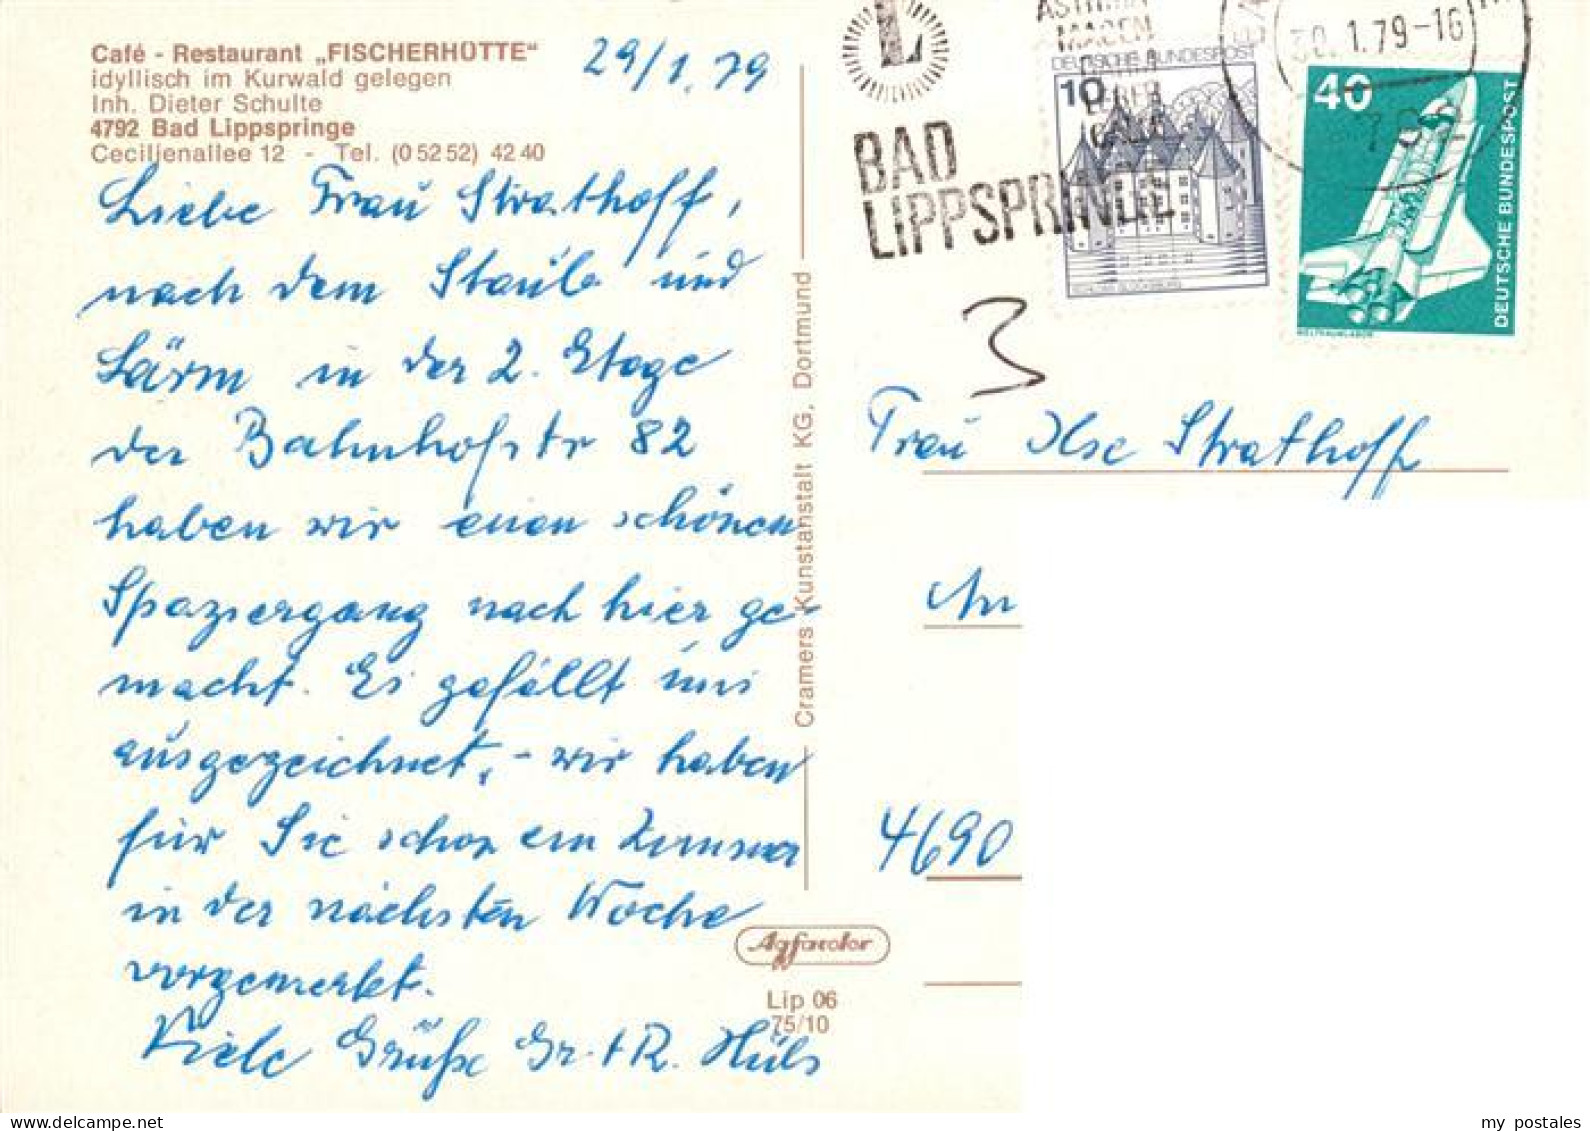 Café - Restaurant „FISCHERHÜTTE“
idyllisch im Kurwald gelegen
Inh. Dieter Schulte
4792 Bad Lippspringe
Cecilienallee 12 - Tel. (0 52 52) 42 40
29/1.79
Liebe Frau Strathoff,
nach dem Staub und
Lärm in der 2. Etage
der Bahnhofstr 82
haben wir einen schönen
Spaziergang nach hier ge-
macht. Es gefällt uns
ausgezeichnet, - wir haben
für Sie schon ein Zimmer
in der nächsten Woche
vorgemerkt.
Viele Grüße Gr. + R. Hüls
Cramers Kunstanstalt KG, Dortmund
Agfacolor
Lip 06
75/10
L
BAD
LIPPSPRINGE
ASTHMA
MAGEN
LEBER
GALLE
10
DEUTSCHE BUNDESPOST
SCHLOSS GLÜCKSBURG
30.1.79-16
40
DEUTSCHE BUNDESPOST
WELTRAUMLABOR
3
Frau Ilse Strathoff
An
4690
my postales